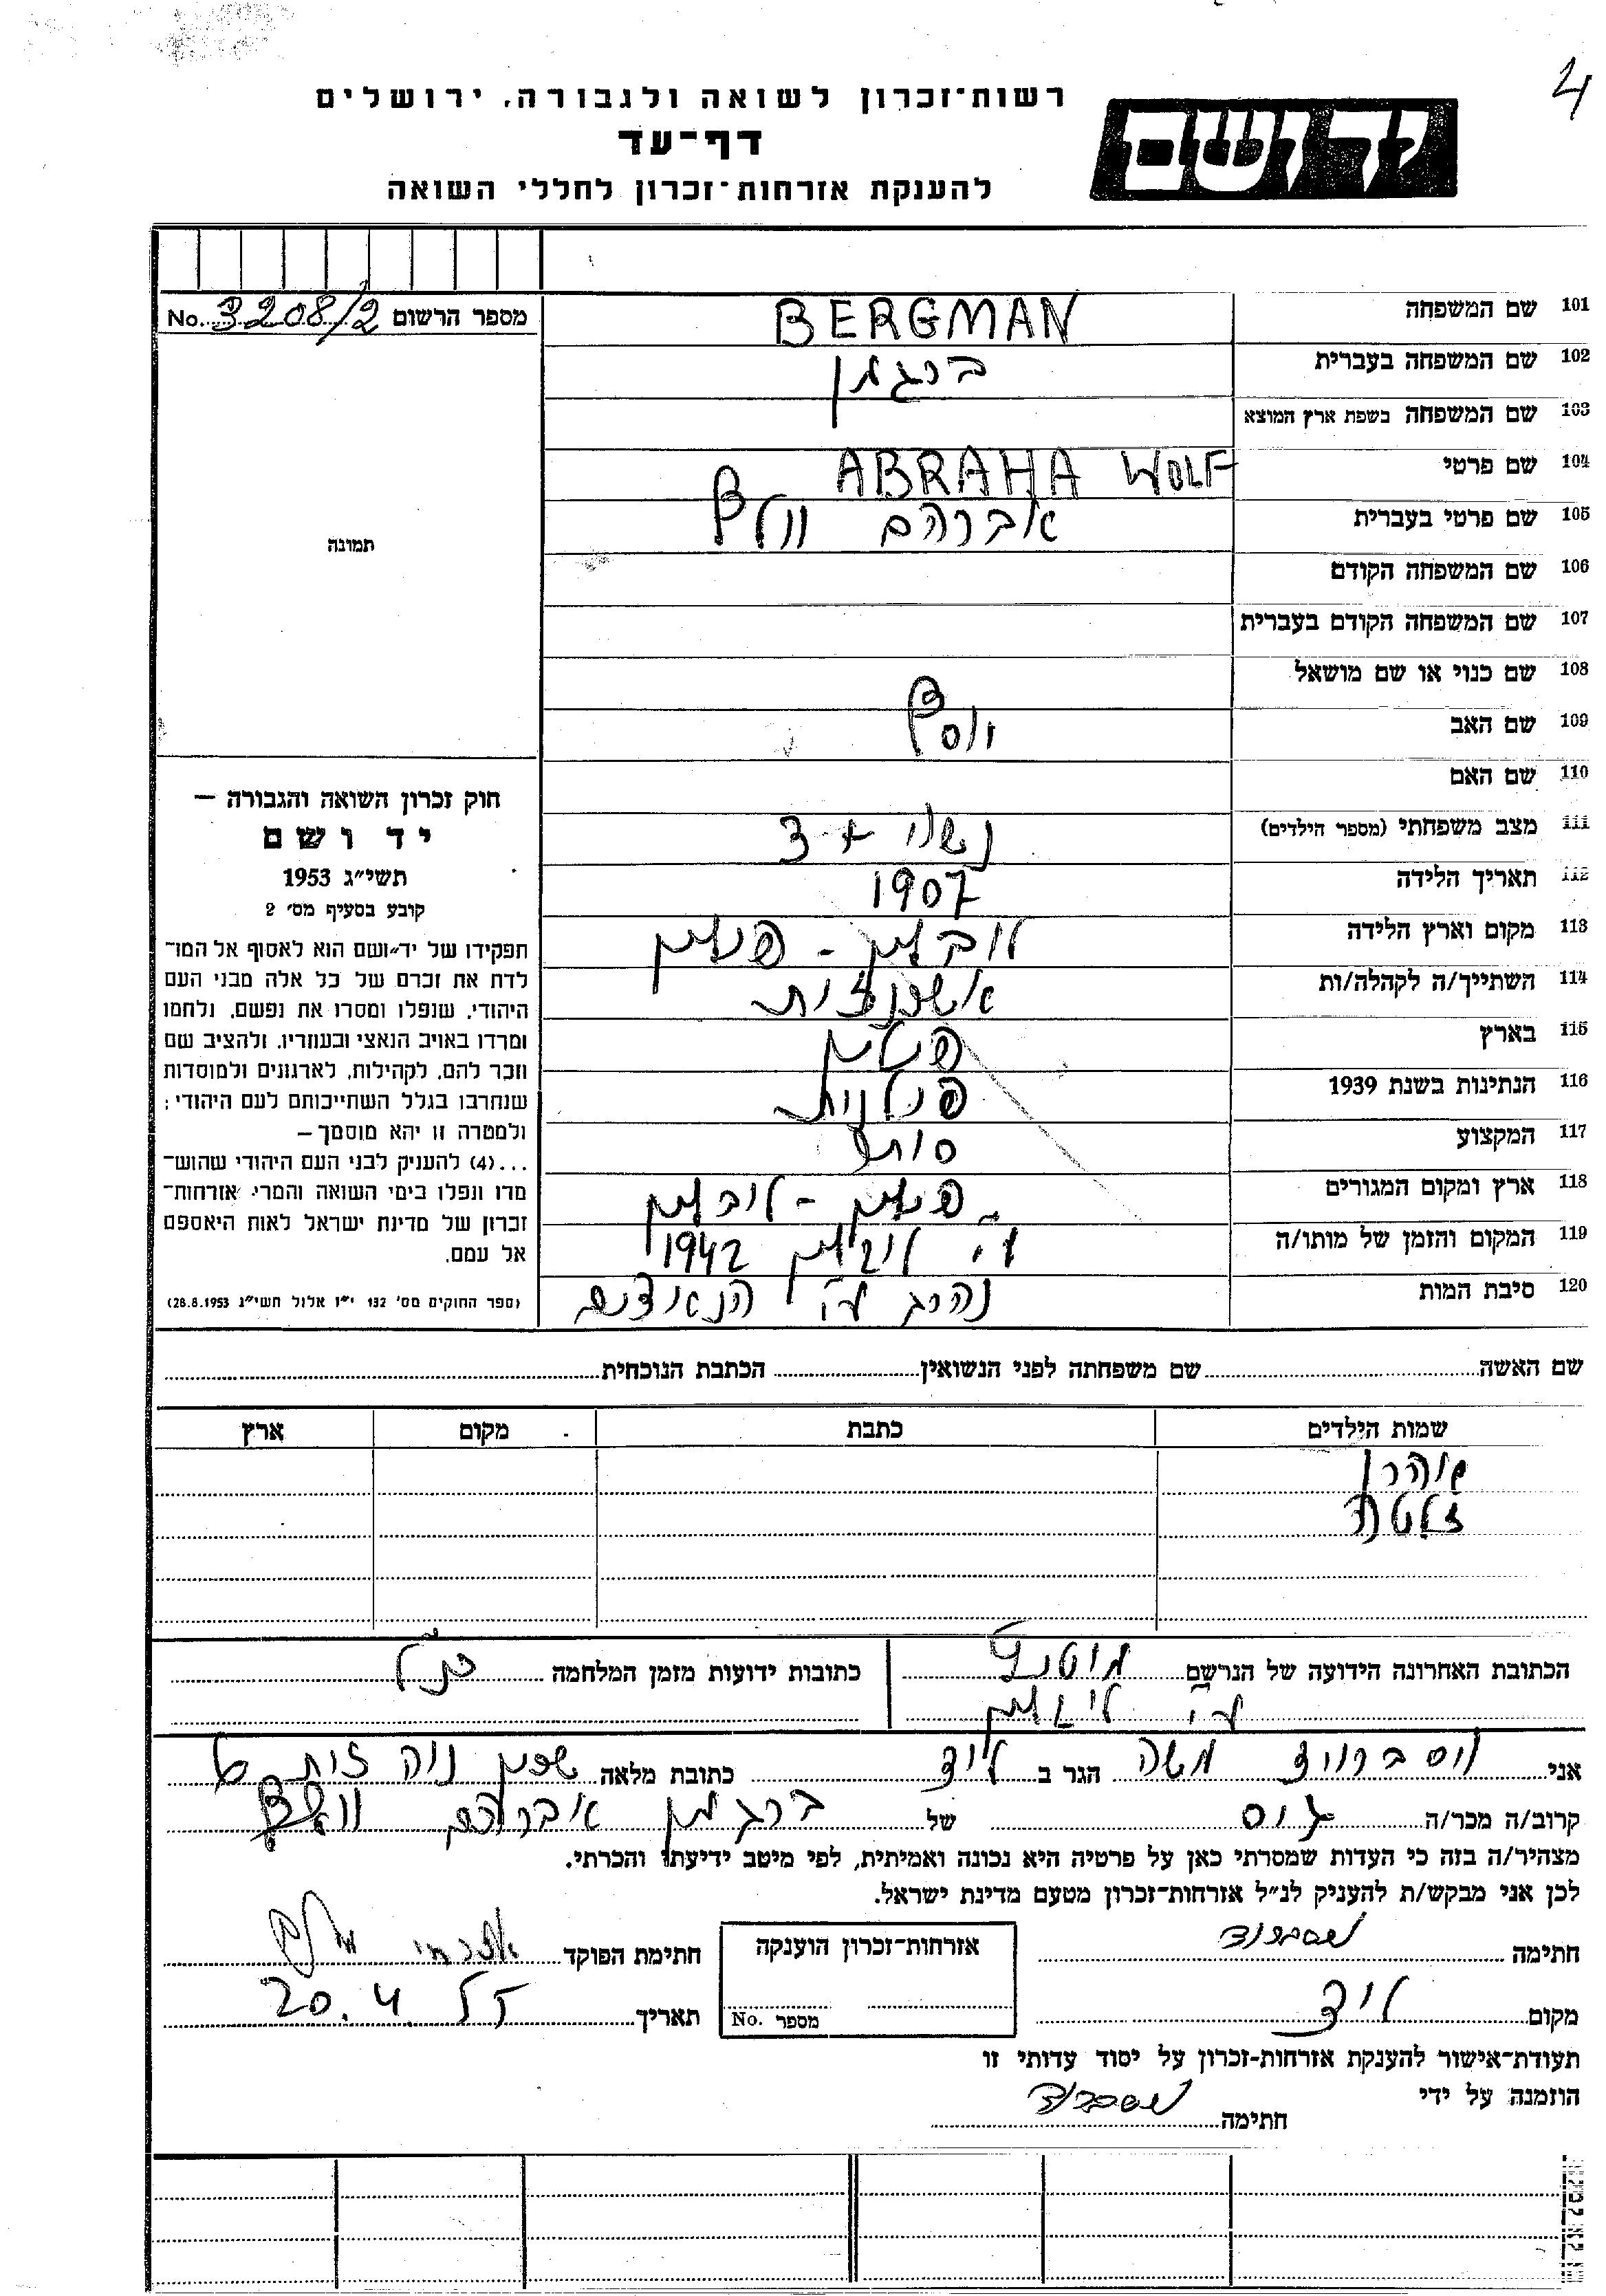 4
רשות־זכרון לשואה ולגבורה, ירושלים
דף־עד
להענקת אזרחות־זכרון לחללי השואה
יד ושם
מספר הרשום No. 3208/2
תמונה
101 שם המשפחה BERGMAN
102 שם המשפחה בעברית ברגמן
103 שם המשפחה בשפת ארץ המוצא
104 שם פרטי ABRAHA WOLF
105 שם פרטי בעברית אברהם וולף
106 שם המשפחה הקודם
107 שם המשפחה הקודם בעברית
108 שם כנוי או שם מושאל
109 שם האב יוסף
110 שם האם
111 מצב משפחתי (מספר הילדים) נשוי + 3
112 תאריך הלידה 1907
113 מקום וארץ הלידה לובלין - פולין
114 השתייך/ה לקהלה/ות אשכנזית
115 בארץ פולין
116 הנתינות בשנת 1939 פולנית
117 המקצוע סוחר
118 ארץ ומקום המגורים פולין - לובלין
119 המקום והזמן של מותו/ה ע"י לובלין 1942
120 סיבת המות נהרג ע"י הנאצים
חוק זכרון השואה והגבורה —
יד ושם
תשי״ג 1953
קובע בסעיף מס׳ 2
תפקידו של יד־ושם הוא לאסוף אל המו־
לדת את זכרם של כל אלה מבני העם
היהודי, שנפלו ומסרו את נפשם, נלחמו
ומרדו באויב הנאצי ובעוזריו, ולהציב שם
וזכר להם, לקהילות, לארגונים ולמוסדות
שנחרבו בגלל השתייכותם לעם היהודי;
ולמטרה זו יהא מוסמך—
...(4) להעניק לבני העם היהודי שהוש־
מדו ונפלו בימי השואה והמרי, אזרחות־
זכרון של מדינת ישראל לאות היאספם
אל עמם.
(ספר החוקים מס׳ 132 י״ז אלול תשי״ג 28.8.1953)
שם האשה שם משפחתה לפני הנשואין הכתבת הנוכחית
שמות הילדים כתבת מקום ארץ
אהרן
זלטה
הכתובת האחרונה הידועה של הנרשם
ע"י לובלין
כתובות ידועות מזמן המלחמה כנ"ל
אני וייסברוד משה הגר ב לוד כתובת מלאה שכון נוה זית
קרוב/ה מכר/ה גיס של ברגמן אברהם וולף
מצהיר/ה בזה כי העדות שמסרתי כאן על פרטיה היא נכונה ואמיתית, לפי מיטב ידיעתי והכרתי.
לכן אני מבקש/ת להעניק לנ״ל אזרחות־זכרון מטעם מדינת ישראל.
חתימה
אזרחות־זכרון הוענקה
מספר No.
חתימת הפוקד
מקום לוד
תאריך 20.4.55
תעודת־אישור להענקת אזרחות־זכרון על יסוד עדותי זו
הוזמנה על ידי
חתימה